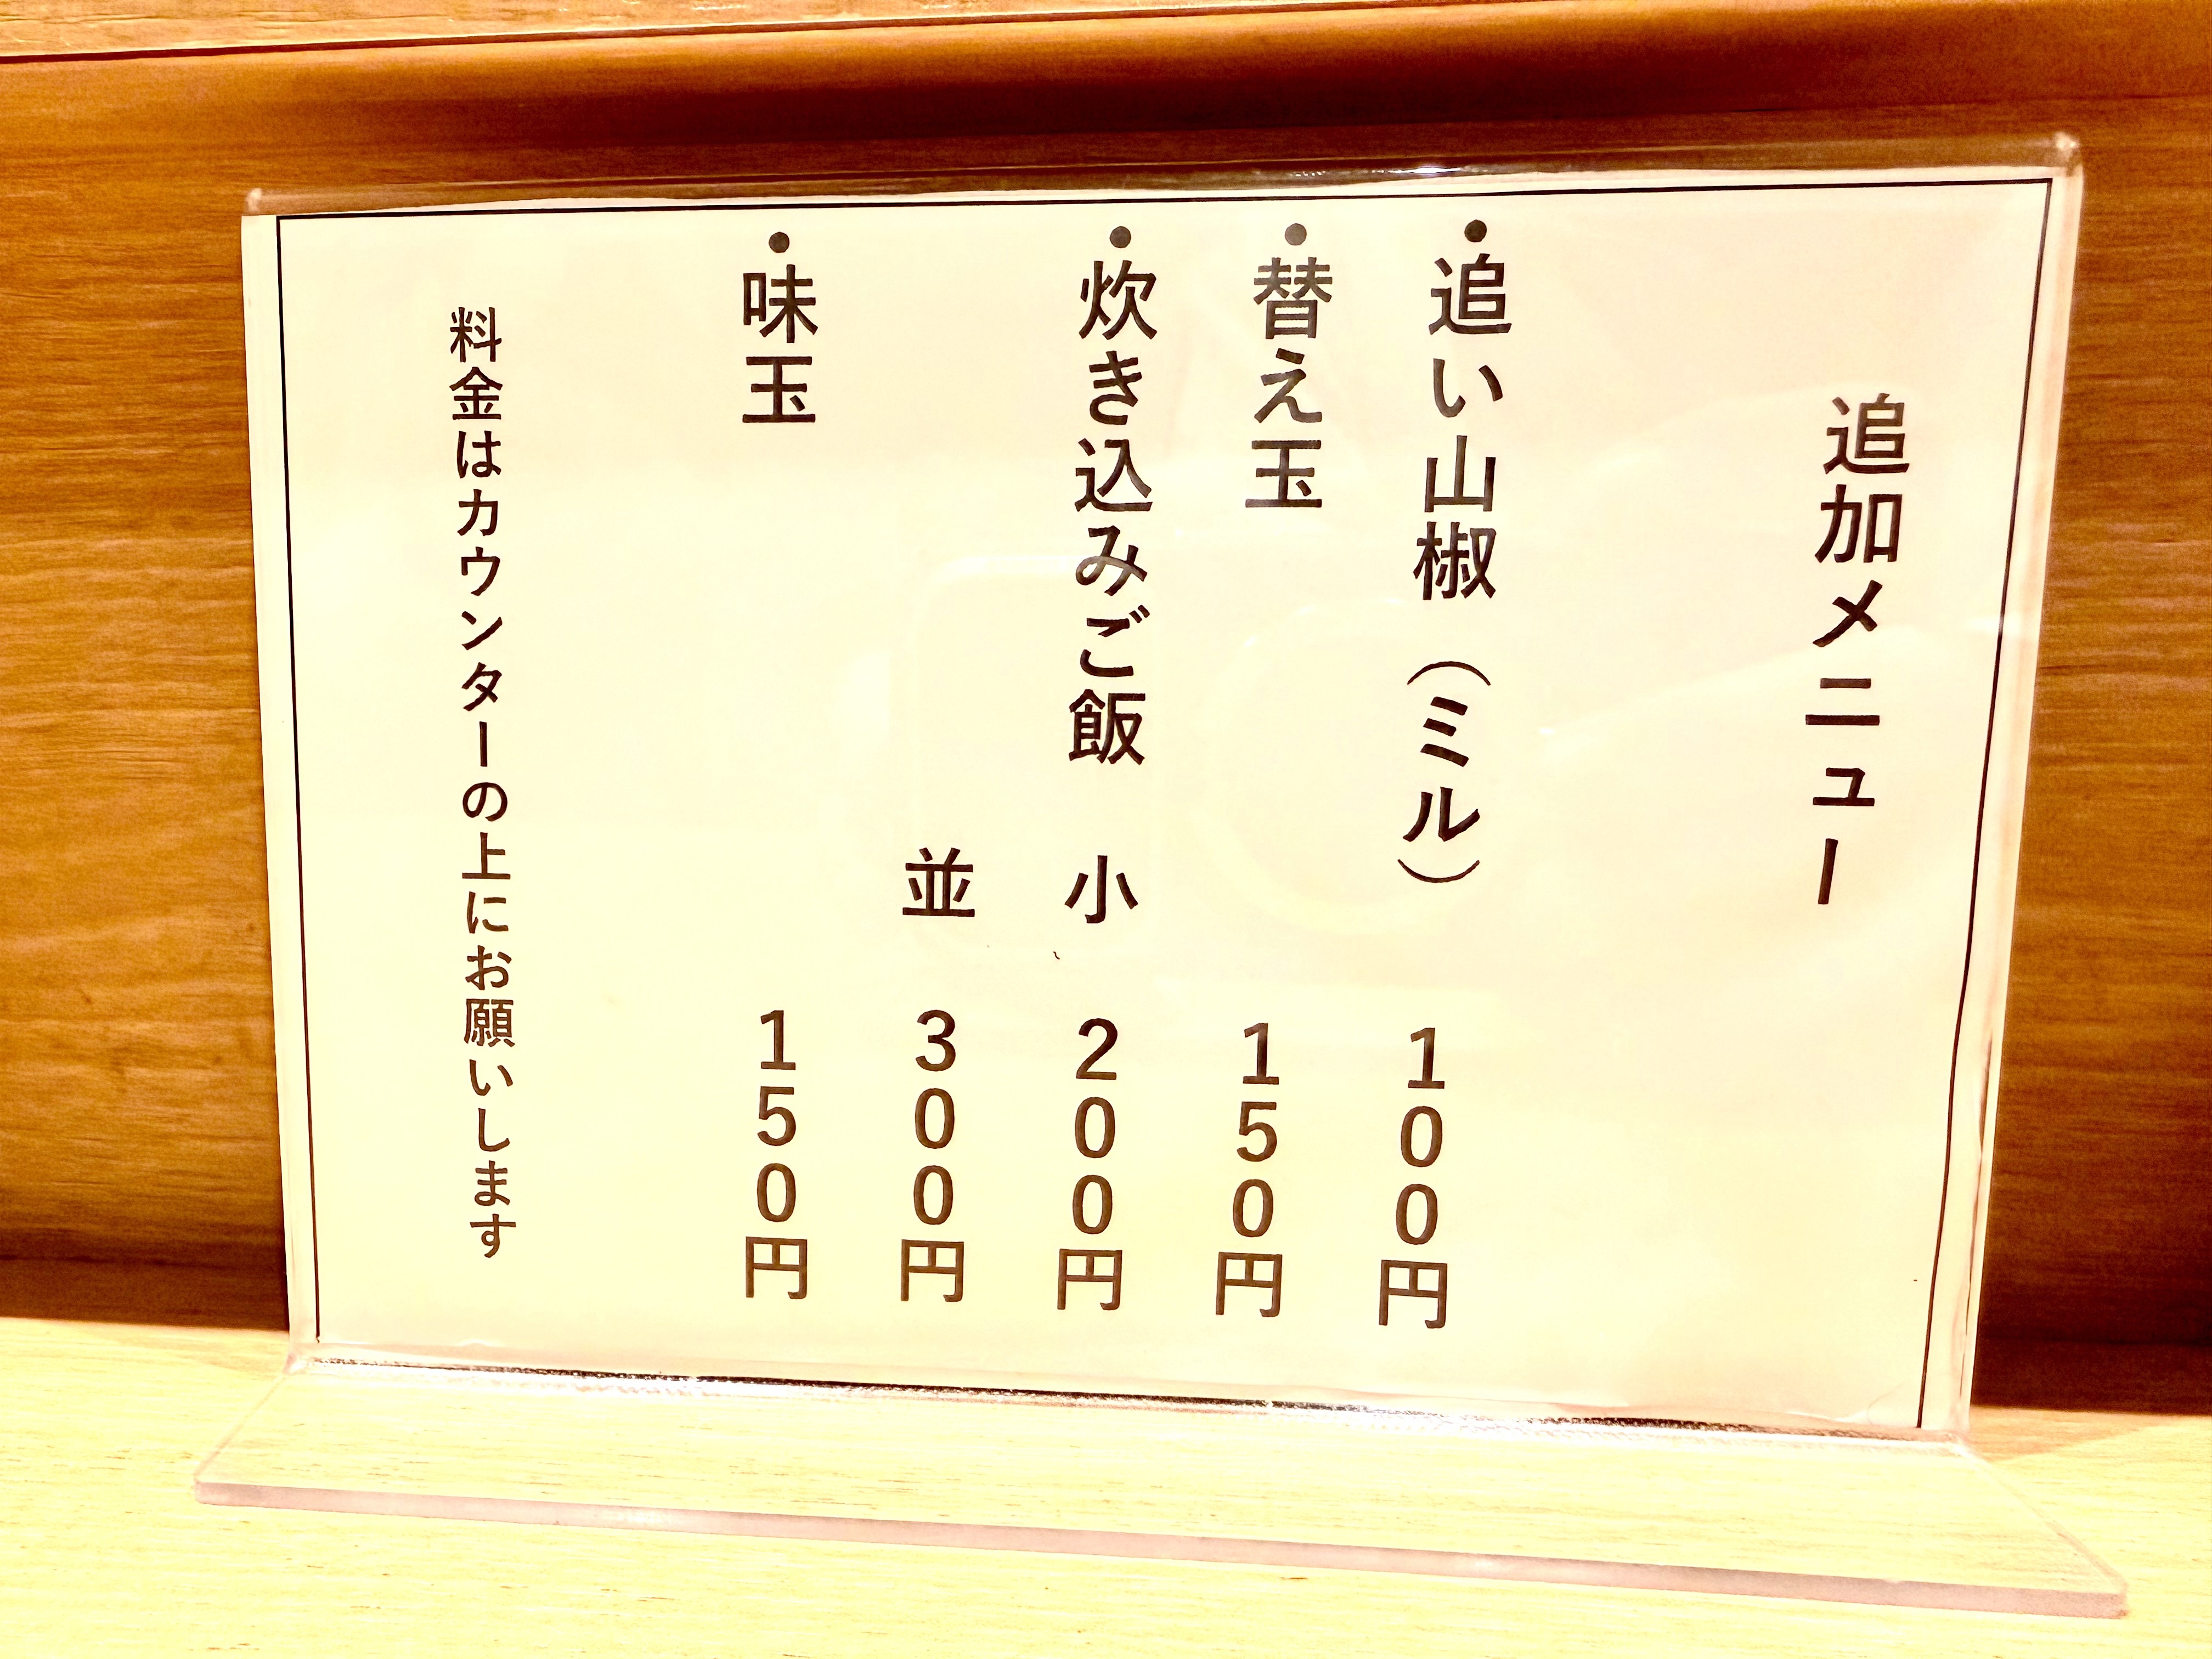 追加メニュー
・追い山椒（ミル） 100円
・替え玉 150円
・炊き込みご飯 小 200円
並 300円
・味玉 150円
料金はカウンターの上にお願いします